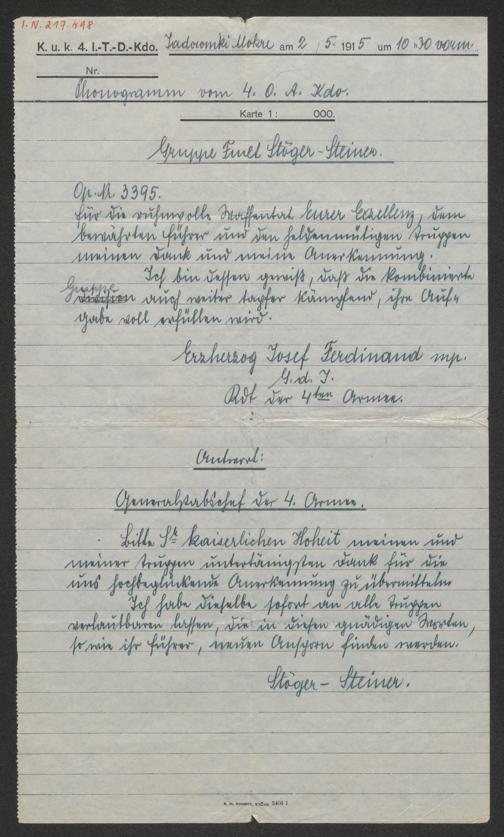 I.N. 217.498
K. u. k. 4. I.-T.-D.-Kdo. Zadowmki Mokre am 2/5. 1915 um 10h30 vorm.
Nr.
Phonogramm vom 4. O. A. Kdo.
Karte 1: 000.
Gruppe Fmlt Stöger-Steiner.
Op. Nr. 3395.
Für die ruhmvolle Waffentat Eurer Exzellenz, dem
bewährten Führer und den heldenmütigen Truppen
meinen Dank und meine Anerkennung.
Ich bin dessen gewiß, daß die kombinierte
Gruppe
Division auch weiter tapfer kämpfend, ihre Auf-
gabe voll erfüllen wird.
Erzherzog Josef Ferdinand mp.
G. d. I.
Kdt der 4ten Armee.
Antwort:
Generalstabschef der 4. Armee.
Bitte Sr kaiserlichen Hoheit meinen und
meiner Truppen untertänigsten Dank für die
uns hochbeglückende Anerkennung zu übermitteln.
Ich habe dieselbe sofort an alle Truppen
verlautbaren lassen, die in diesen gnädigen Worten,
so wie ihr Führer, neuen Ansporn finden werden.
Stöger-Steiner.